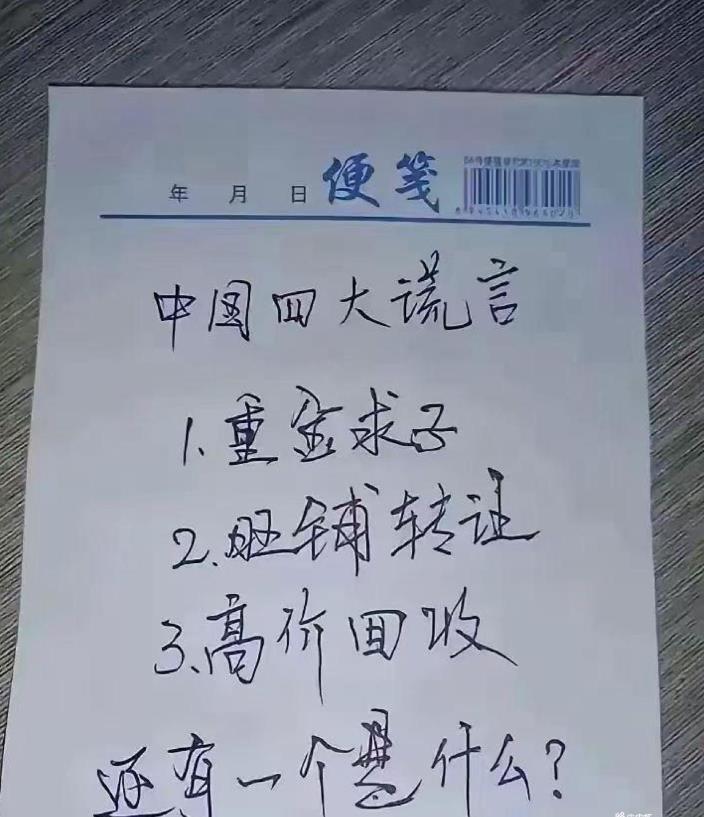 年 月 日 便笺
中国四大谎言
1.重金求子
2.旺铺转让
3.高价回收
还有一个是什么?